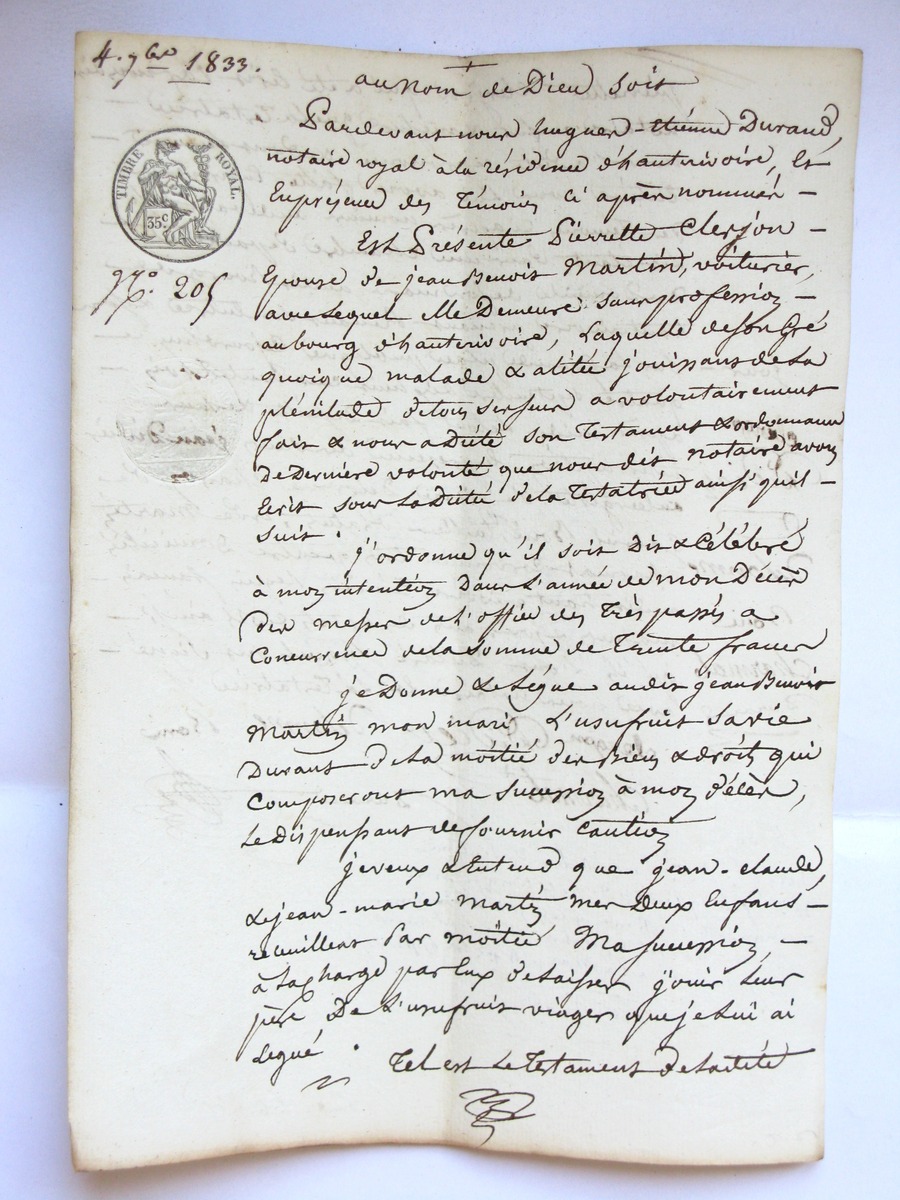 4. 9bre 1833.
au nom de Dieu soit
TIMBRE ROYAL.
35c
Pardevant nous hugues-étienne Durand,
notaire royal à la résidence d'hauterivoire, Et
En présence des Témoins ci après nommés -
Est Présente Pierrette Clerjon -
No. 205
Epouse de jean Benoit Martin, voiturier,
avec lequel elle Demeure sans profession -
au bourg d'hauterivoire, Laquelle de son Gré
quoique malade & alitée jouissant de la
plénitude de tous ses sens a volontairement
fait & nous a Dicté son Testament & ordonnance
De Derniere volonté que nous dit notaire avons
Ecrit sous la Dictée de la Testatrice ainsi qu'il -
suit.
j'ordonne qu'il soit Dit & Célébré
à mon intention Dans l'année de mon Décès
Des messes de l'office des Très passés a
Concurrence de la somme de Trente francs
je Donne & Lègue audit jean Benoit
Martin mon mari L'usufruit sa vie
Durant de la moitié des Biens & droits qui
Composeront ma succession à mon décès,
Le dispensant de fournir Caution
je veux & Entend que jean-claude,
& jean-marie Martin mes Deux Enfants -
recueillent Par moitié Ma succession, -
à la charge par Eux de laisser jouir leur
père De L'usufruit viager que je lui ai
Legué.
Tel est Le Testament de ladite